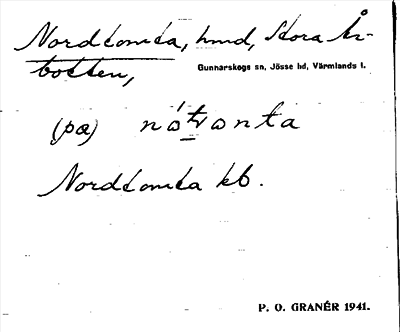 Nordtomta, hmd, Stora År-
botten,
Gunnarskogs sn, Jösse hd, Värmlands l.
(pa)
Nordtomta kb.
P. O. GRANÉR 1941.